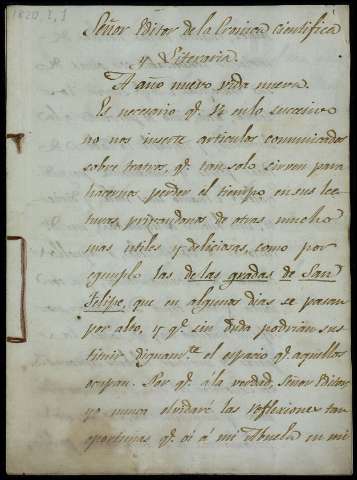 1820, I, 1
Señor Editor de la Cronica cientifica
y Literaria.
A año nuevo vida nueva.
Es necesario q.e V. en lo sucesivo
no nos inserte articulos comunicados
sobre teatros, q.e tan solo sirven para
hacernos perder el tiempo en sus lec
turas, privandonos de otras mucho
mas utiles y deliciosas, como por
egemplo las de las gradas de San
Felipe, que en algunos dias se pasan
por alto, y q.e sin duda podrian sus
tituir dignam.te el espacio q.e aquellos
ocupan. Por q.e á la verdad, Señor Editor,
yo nunca olvidaré las reflexiones tan
oportunas q.e oí á mi Abuela en mi